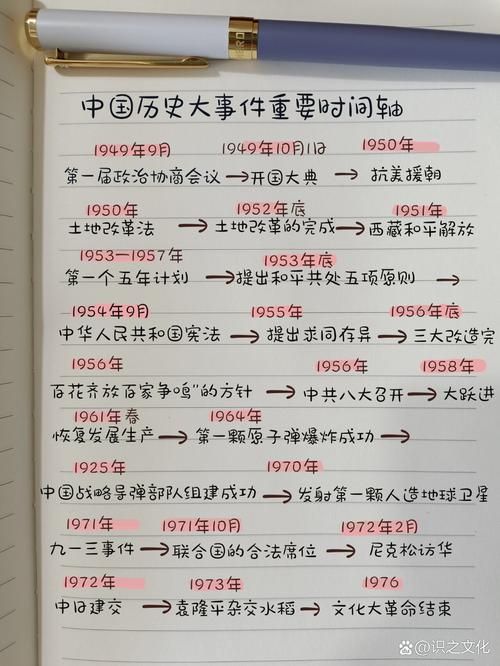 中国历史大事件重要时间轴
1949年9月 1949年10月1日 1950年
第一届政治协商会议→开国大典→抗美援朝
1950年 1952年底 1951年
土地改革法→土地改革的完成→西藏和平解放
1953—1957年 1953年底
第一个五年计划→提出和平共处五项原则→
1954年9月 1955年 1956年底
中华人民共和国宪法→提出求同存异→三大改造完
1956年 1956年 1958年
百花齐放百家争鸣"的方针→中共八大召开→大跃进
1961年春 1964年
恢复发展生产→第一颗原子弹爆炸成功→
1925年 1970年
中国战略导弹部队组建成功→发射第一颗人造地球卫星
1971年 1971年10月 1972年2月
九一三事件→联合国的合法席位→尼克松访华
1972年 1973年 1976
中日建交→袁隆平杂交水稻→文化大革命结束
识之文化